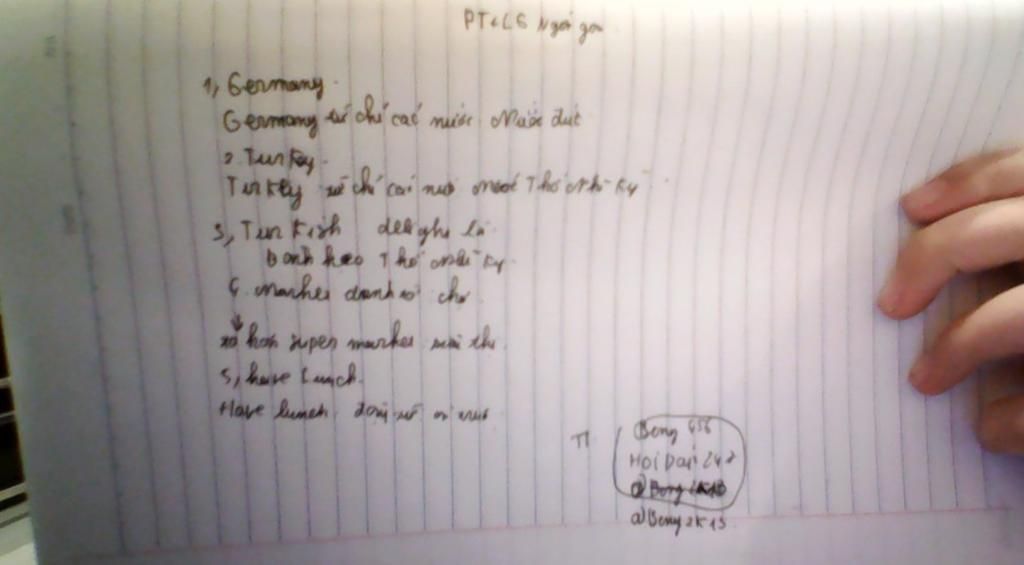 PT<LS Ngôi gon
1, Germany.
Germany từ chỉ cái nước Nước đức
2. Turkey.
Turkey từ chỉ cái nước nước Thổ Nhĩ Kỳ
3, Turkish delight là
Bánh kẹo Thổ Nhĩ Kỳ
danh từ chợ
super market siêu thị
5, have Lunch.
Have lunch động từ ăn trưa
TT
Bong 456
Hoi Dai 247
@Bong2K13